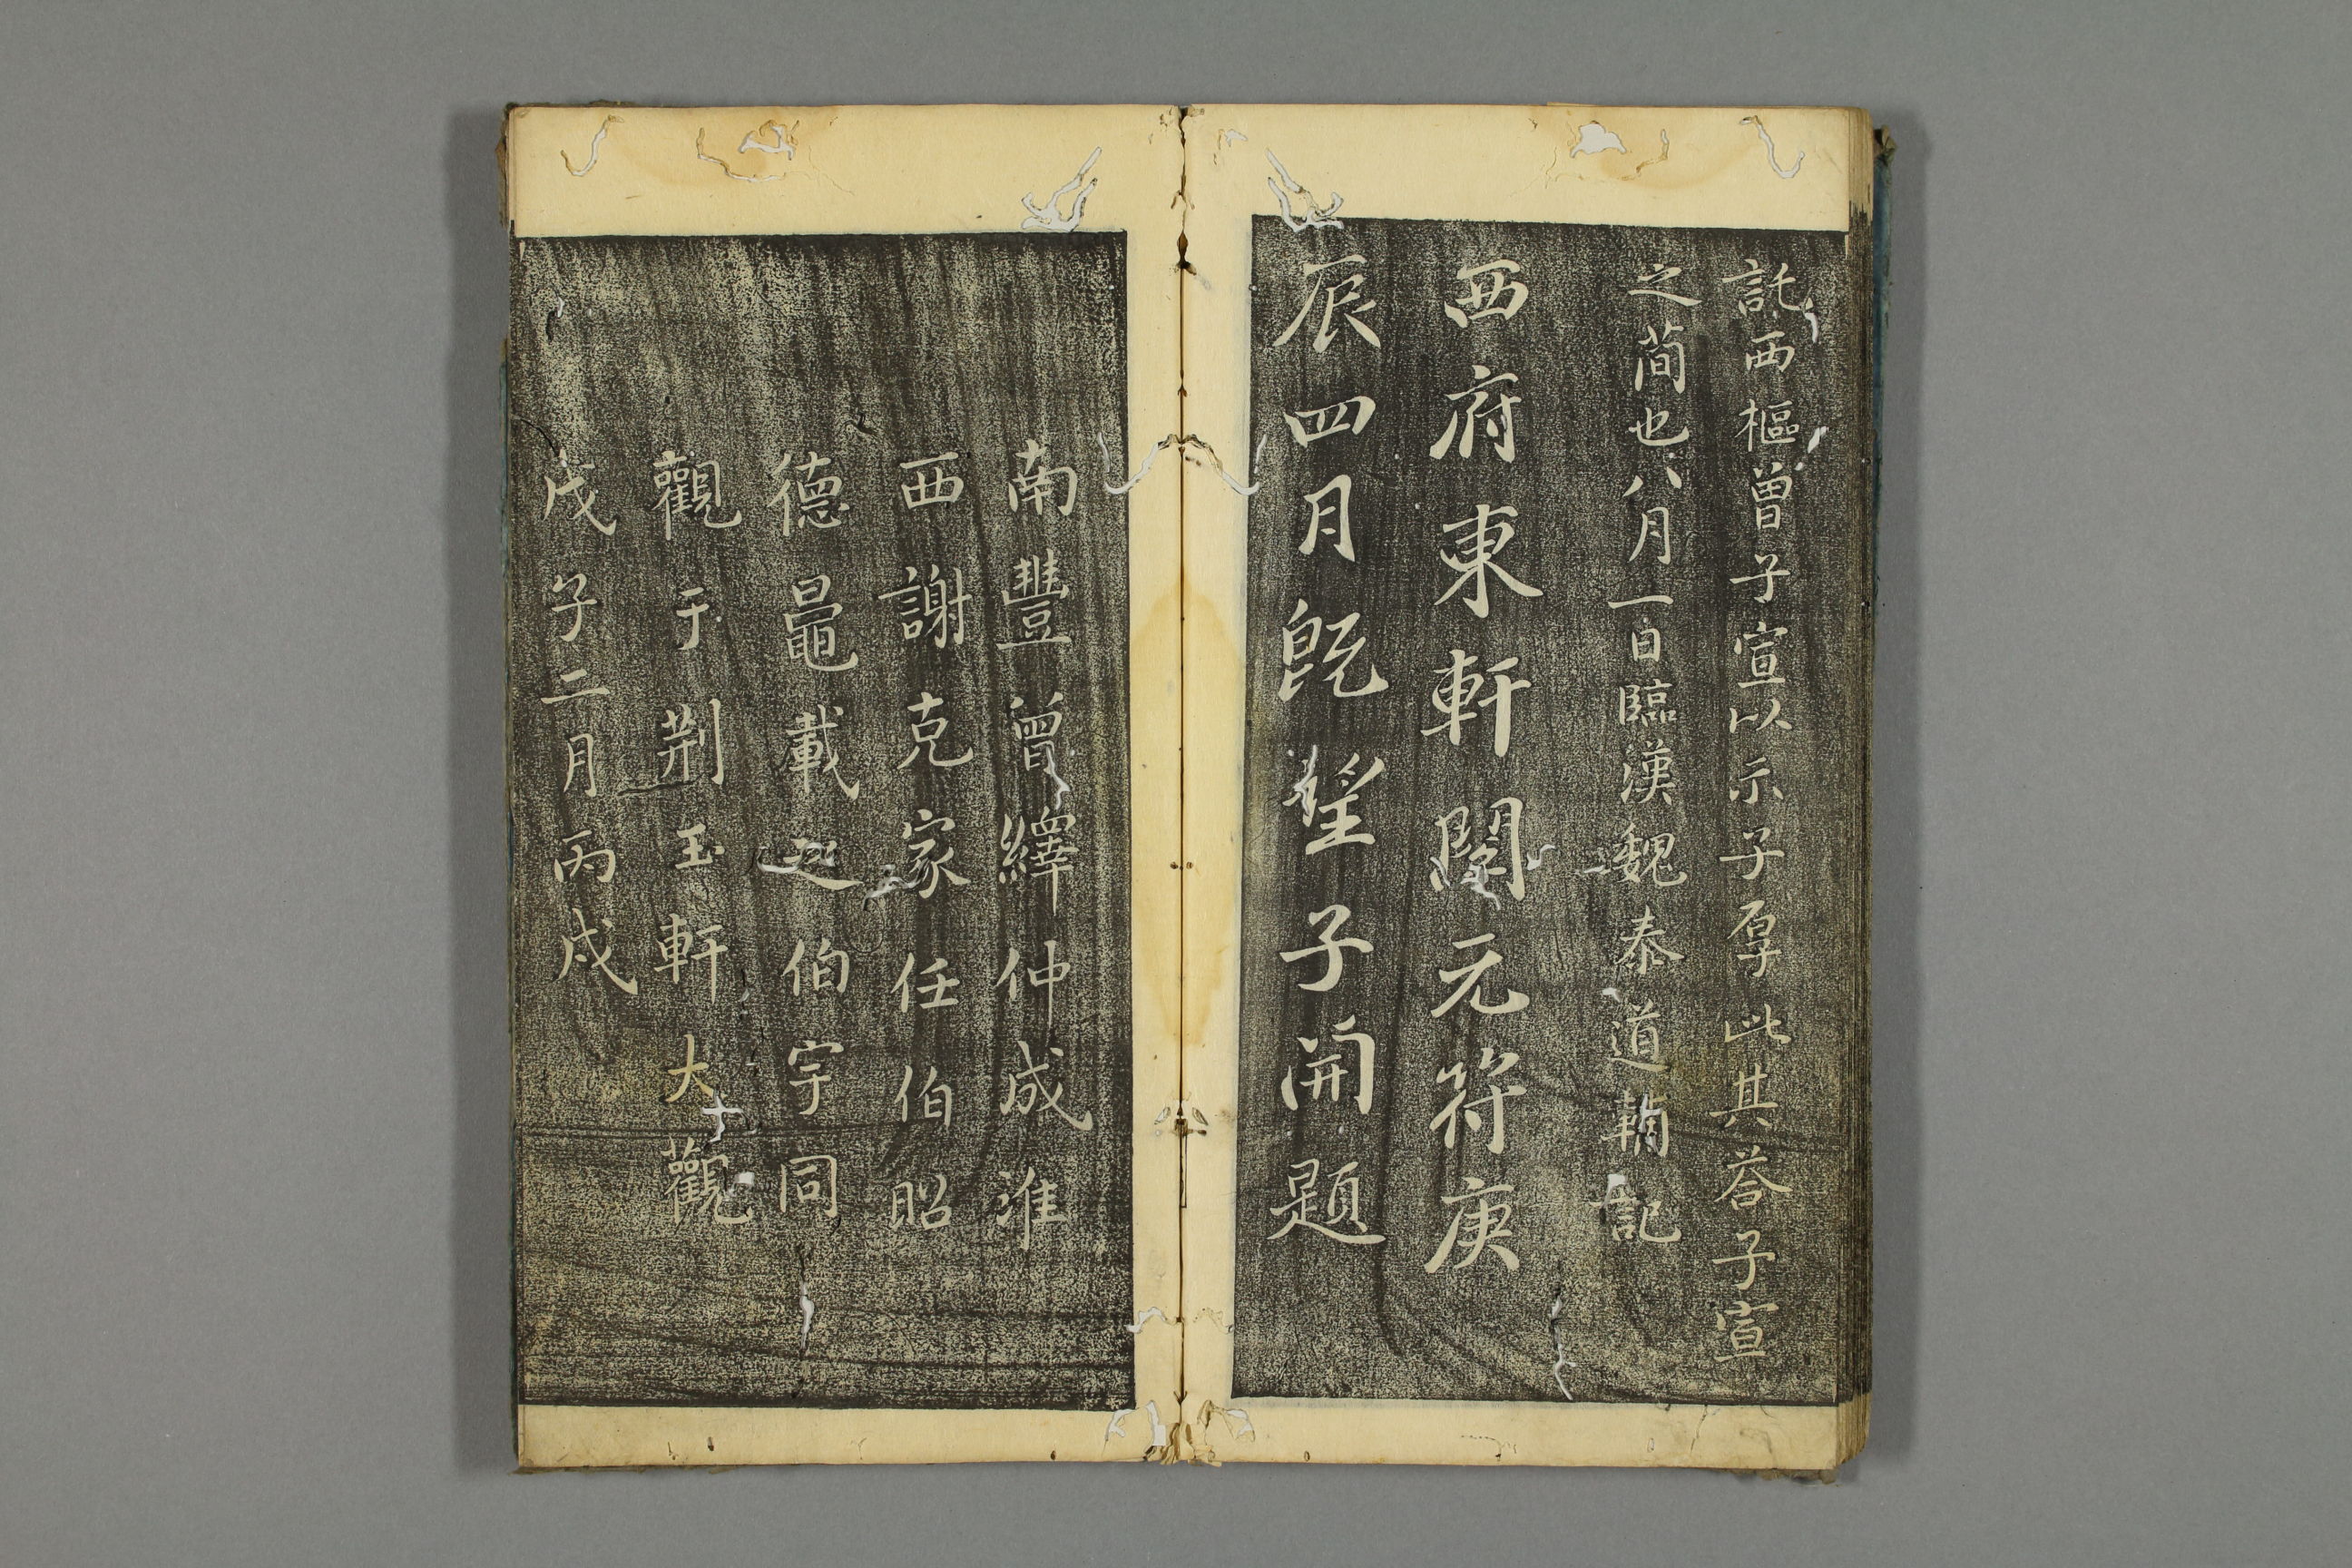 託西樞曾子宣以示子厚此其荅子宣
之蕳也八月一日臨漢魏泰道輔記
西府東軒閱元符庚
辰四月既望子開題
南豐曾繹仲成淮
西謝克家任伯昭
德鼂載之伯宇同
觀于荆玉軒大觀
戊子二月丙戌